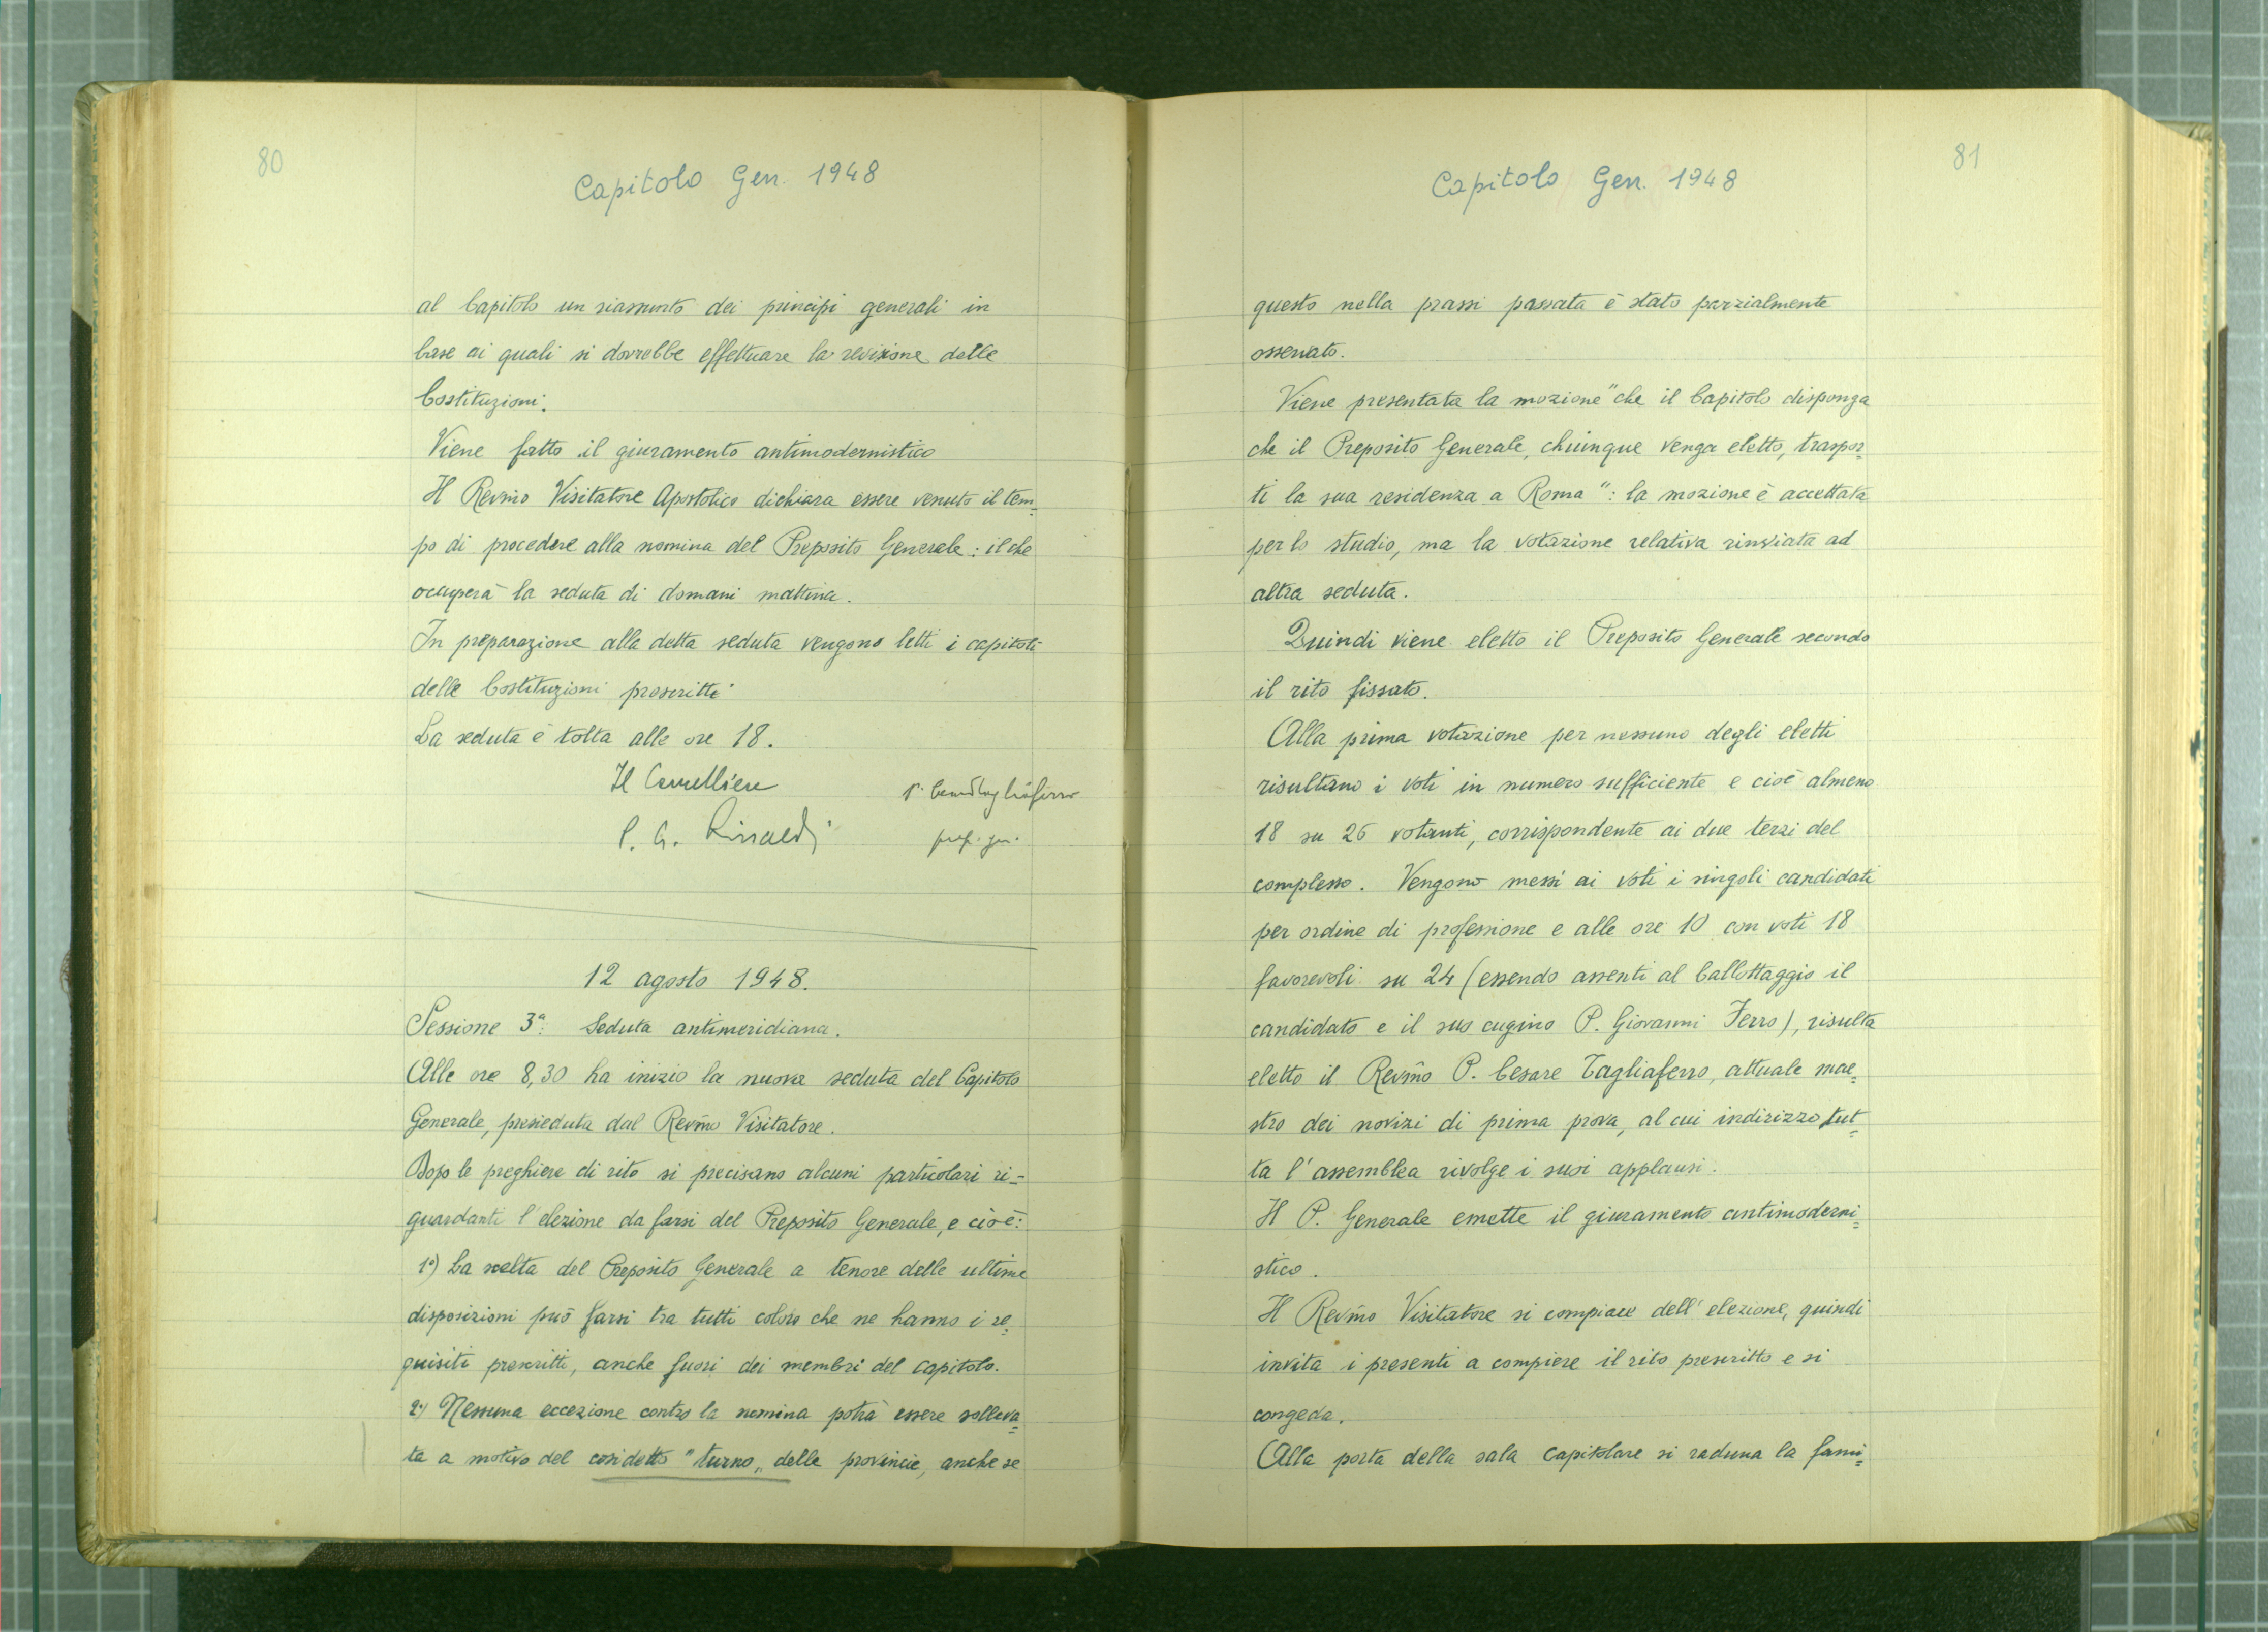 80
Capitolo Gen. 1948
al Capitolo un riassunto dei principi generali in
base ai quali si dovrebbe effettuare la revisione delle
Costituzioni.
Viene fatto il giuramento antimodernistico
Il Revmo Visitatore Apostolico dichiara essere venuto il tem=
po di procedere alla nomina del Preposito Generale: il che
occuperà la seduta di domani mattina.
In preparazione alla detta seduta vengono letti i capitoli
delle Costituzioni prescritti
La seduta è tolta alle ore 18.
Il Cancelliere
P. Cesare Tagliaferro
P. G. Rinaldi
prep. gen.
12 agosto 1948.
Sessione 3ª: Seduta antimeridiana.
Alle ore 8,30 ha inizio la nuova seduta del Capitolo
Generale, presieduta dal Revmo Visitatore.
Dopo le preghiere di rito si precisano alcuni particolari ri=
guardanti l'elezione da farsi del Preposito Generale, e cioè:
1º) La scelta del Preposito Generale a tenore delle ultime
disposizioni può farsi tra tutti coloro che ne hanno i re=
quisiti prescritti, anche fuori dei membri del capitolo.
2º) Nessuna eccezione contro la nomina potrà essere solleva=
ta a motivo del cosidetto "turno„ delle provincie, anche se
81
Capitolo Gen. 1948
questo nella prassi passata è stato parzialmente
osservato.
Viene presentata la mozione "che il Capitolo disponga
che il Preposito Generale, chiunque venga eletto, traspor=
ti la sua residenza a Roma": la mozione è accettata
per lo studio, ma la votazione relativa rinviata ad
altra seduta.
Quindi viene eletto il Preposito Generale secondo
il rito fissato.
Alla prima votazione per nessuno degli eletti
risultano i voti in numero sufficiente e cioè almeno
18 su 26 votanti, corrispondente ai due terzi del
complesso. Vengono messi ai voti i singoli candidati
per ordine di professione e alle ore 10 con voti 18
favorevoli su 24 (essendo assenti al ballottaggio il
candidato e il suo cugino P. Giovanni Ferro), risulta
eletto il Revmo P. Cesare Tagliaferro, attuale mae=
stro dei novizi di prima prova, al cui indirizzo tut=
ta l'assemblea rivolge i suoi applausi.
Il P. Generale emette il giuramento antimoderni=
stico.
Il Revmo Visitatore si compiace dell'elezione, quindi
invita i presenti a compiere il rito prescritto e si
congeda.
Alla porta della sala capitolare si raduna la fami=